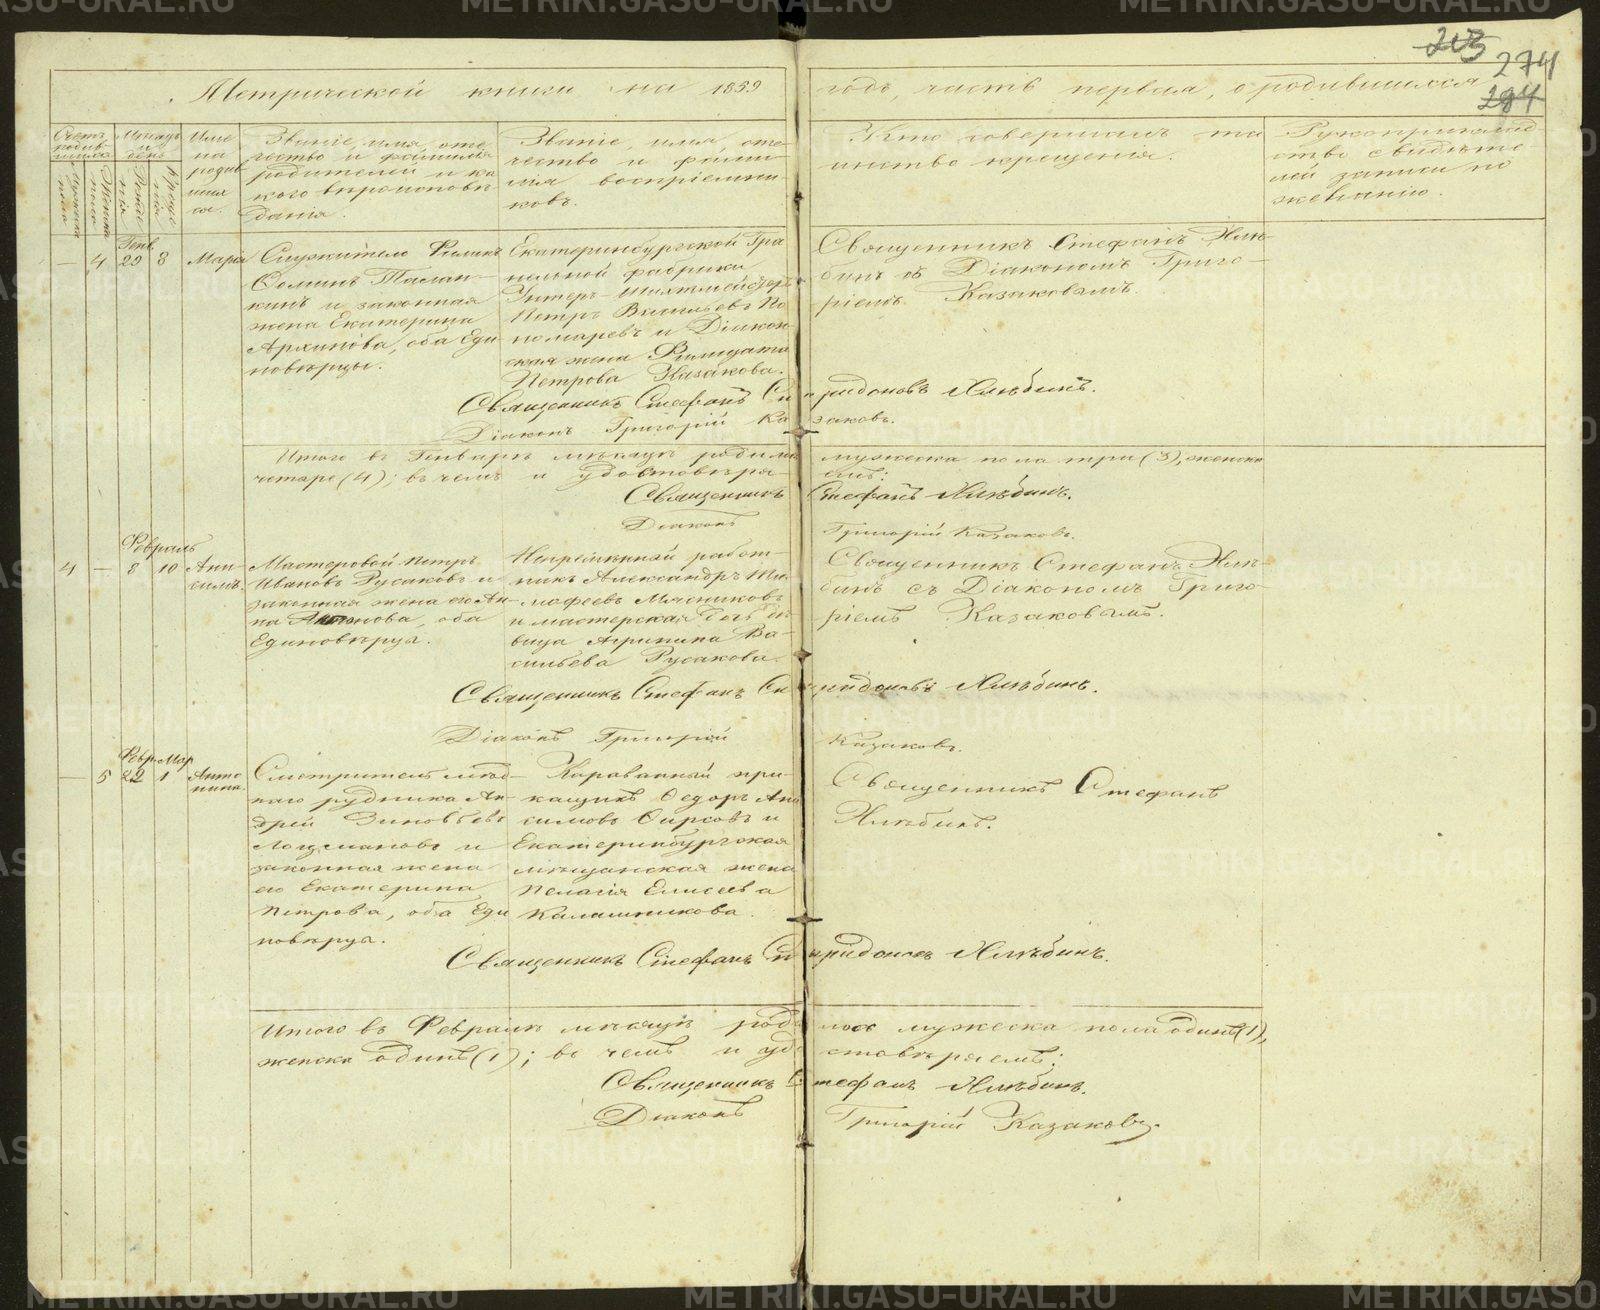 203
274
284
Метрической книги на 1859 годъ, часть первая, о родившихся
Счетъ родив-шихся
Мужеска полу
Женска полу
Мѣсяцъ и день
Рожденія
Крещенія
Имена родившихся.
Званіе, имя, оте-
чество и фамилія
родителей и ка-
кого вѣроисповѣ-
данія.
Званіе, имя, оте-
чество и фами-
лія воспріемни-
ковъ.
Кто совершалъ та-
инство крещенія.
Рукоприклад-
ство свидѣте-
лей записи по
желанію.
Генв.
— 4 29 8 Марія
Служитель
и законная
жена Екатерина
Архипова, оба Еди-
новѣрцы.
Екатеринбургской Гра-
нильной фабрики
Унтеръ-Шихтмейстеръ
Петръ Васильевъ По-
номаревъ и Діакон-
ская жена
Петрова Казакова.
Священникъ Стефанъ Хлѣ-
бинъ съ Діакономъ Григо-
ріемъ Казаковымъ.
Священникъ Стефанъ Спиридоновъ Хлѣбинъ.
Діаконъ Григорій Казаковъ.
Итого въ Генварѣ мѣсяцѣ родилось мужеска пола три (3), женска
четыре (4); въ чемъ и удостовѣряемъ:
Священникъ Стефанъ Хлѣбинъ.
Діаконъ Григорій Казаковъ.
Февраль
4 — 8 10 Ани-
симъ.
Мастеровой Петръ
Ивановъ Русаковъ и
законная жена его Ан-
на оба
Единовѣрцы.
Непремѣнный работ-
никъ Александръ Ти-
мофеевъ Мясниковъ
и мастерская дочь дѣ-
вица Агрипина Ва-
сильева Русакова.
Священникъ Стефанъ Хлѣ-
бинъ съ Діакономъ Григо-
ріемъ Казаковымъ.
Священникъ Стефанъ Спиридоновъ Хлѣбинъ.
Діаконъ Григорій Казаковъ.
Февр. Мар.
— 5 22 1 Анто-
нина.
Смотритель мѣд-
наго рудника Ан-
дрей Зиновьевъ
Лоцмановъ и
законная жена
его Екатерина
Петрова, оба Еди-
новѣрцы.
Караванный при-
кащикъ Федоръ Ани-
симовъ Фирсовъ и
Екатеринбургская
мѣщанская жена
Пелагія Елисеева
Калашникова.
Священникъ Стефанъ
Хлѣбинъ.
Священникъ Стефанъ Спиридоновъ Хлѣбинъ.
Итого въ Февралѣ мѣсяцѣ родилось мужеска пола одинъ (1),
женска одинъ (1); въ чемъ и удостовѣряемъ:
Священникъ Стефанъ Хлѣбинъ.
Діаконъ Григорій Казаковъ.
METRIKI.GASO-URAL.RU